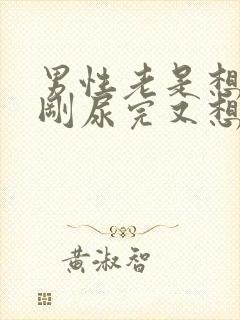 男性老是想
剛尿完又想
黃淑智